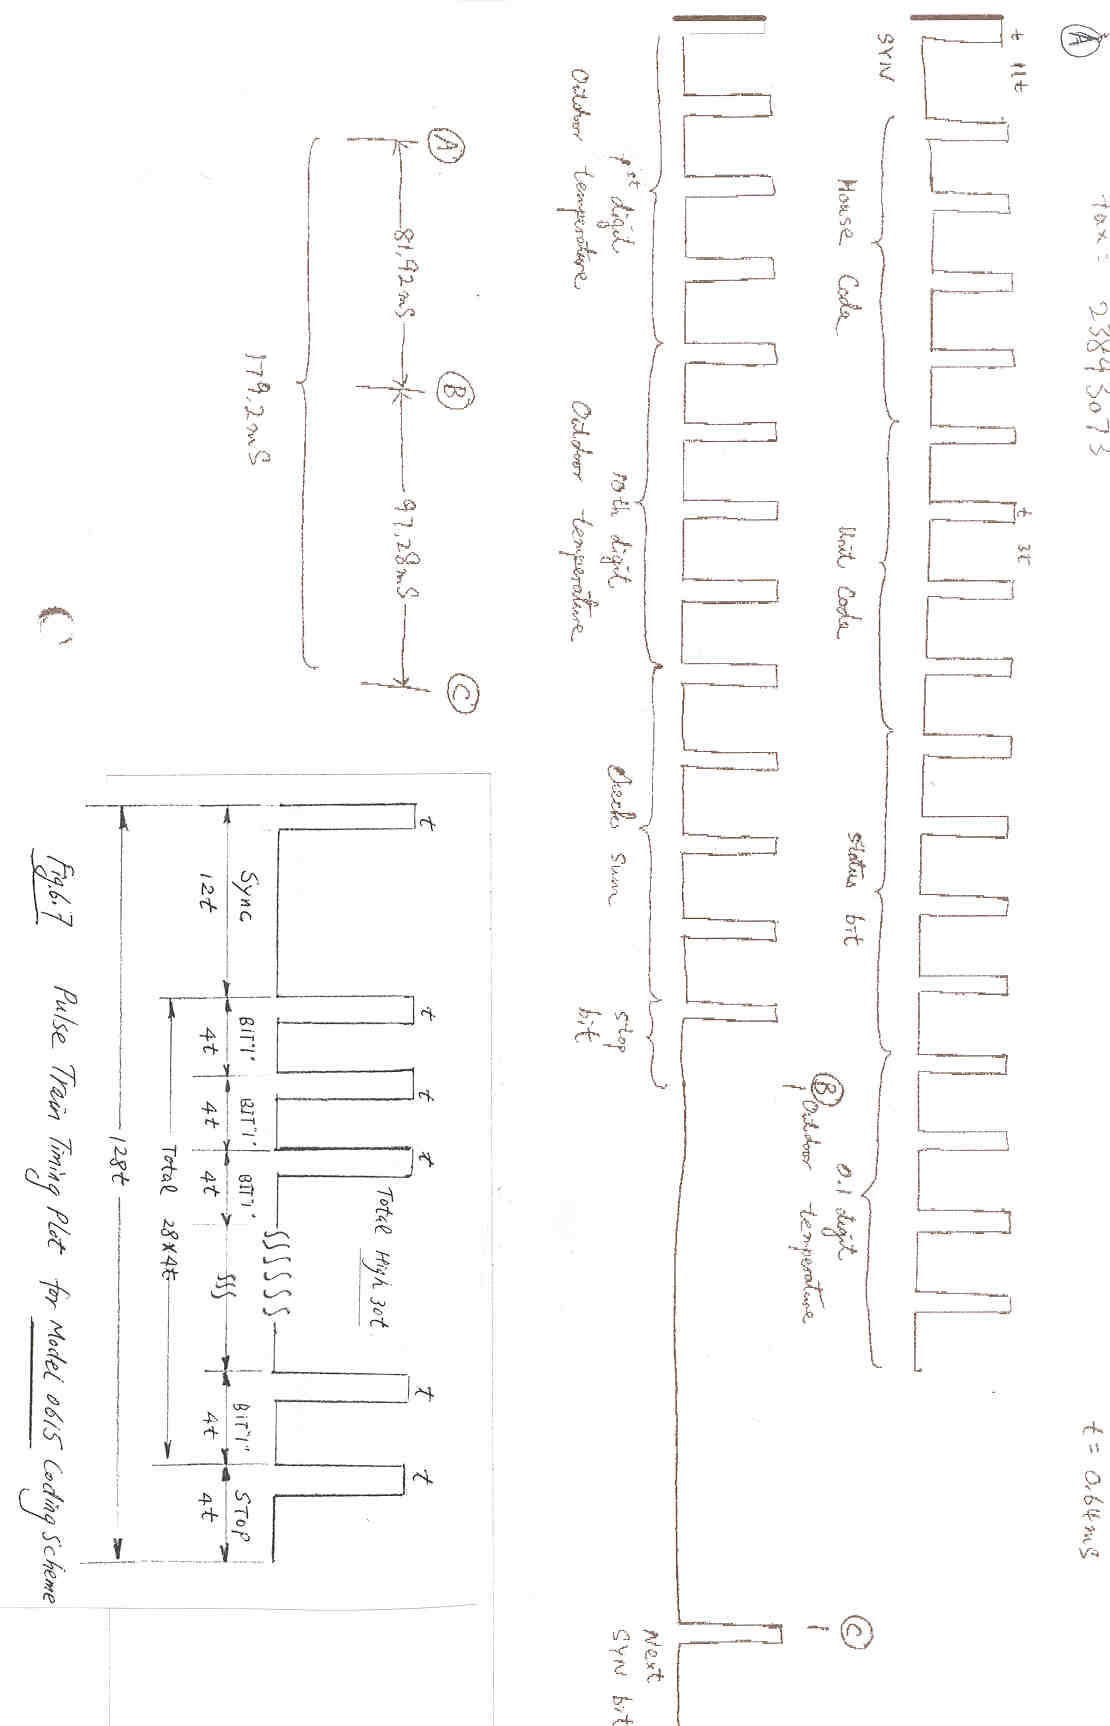 A
Fax: 23893073
t = 0.64mS
t 11t
t 3t
SYN
House Code
Unit Code
Status bit
0.1 digit
B
Outdoor temperature
C
1st digit
Outdoor temperature
10th digit
Outdoor temperature
Check Sum
Stop bit
Next
SYN bit
A
B
C
81.92mS
97.28mS
179.2mS
Total High 30t
t
t
t
t
t
t
Sync
12t
BIT"1"
4t
BIT"1"
4t
BIT"1"
4t
BIT"1"
4t
STOP
4t
Total 28x4t
128t
Fig.6.7 Pulse Train Timing Plot for Model 0615 Coding Scheme